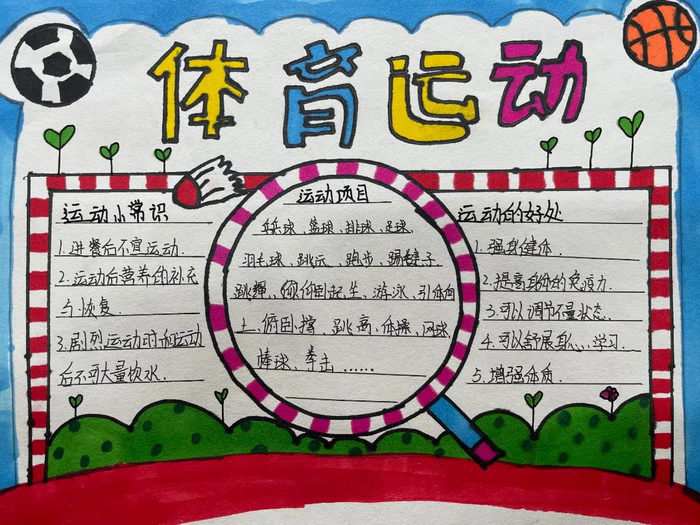 体育运动
运动小常识
1.进餐后不宜运动.
2.运动后营养的补充
与恢复.
3.剧烈运动时和运动
后不可大量饮水.
运动项目
篮球、排球、足球、
羽毛球、跳远、跑步、踢毽子
跳绳、仰卧起坐、游泳、引体向
上、俯卧撑、跳高、体操、网球
棒球、拳击……
运动的好处
1.强身健体.
2.提高身体的免疫力.
3.可以调节不良状态.
4.可以舒展身心、学习.
5.增强体质.